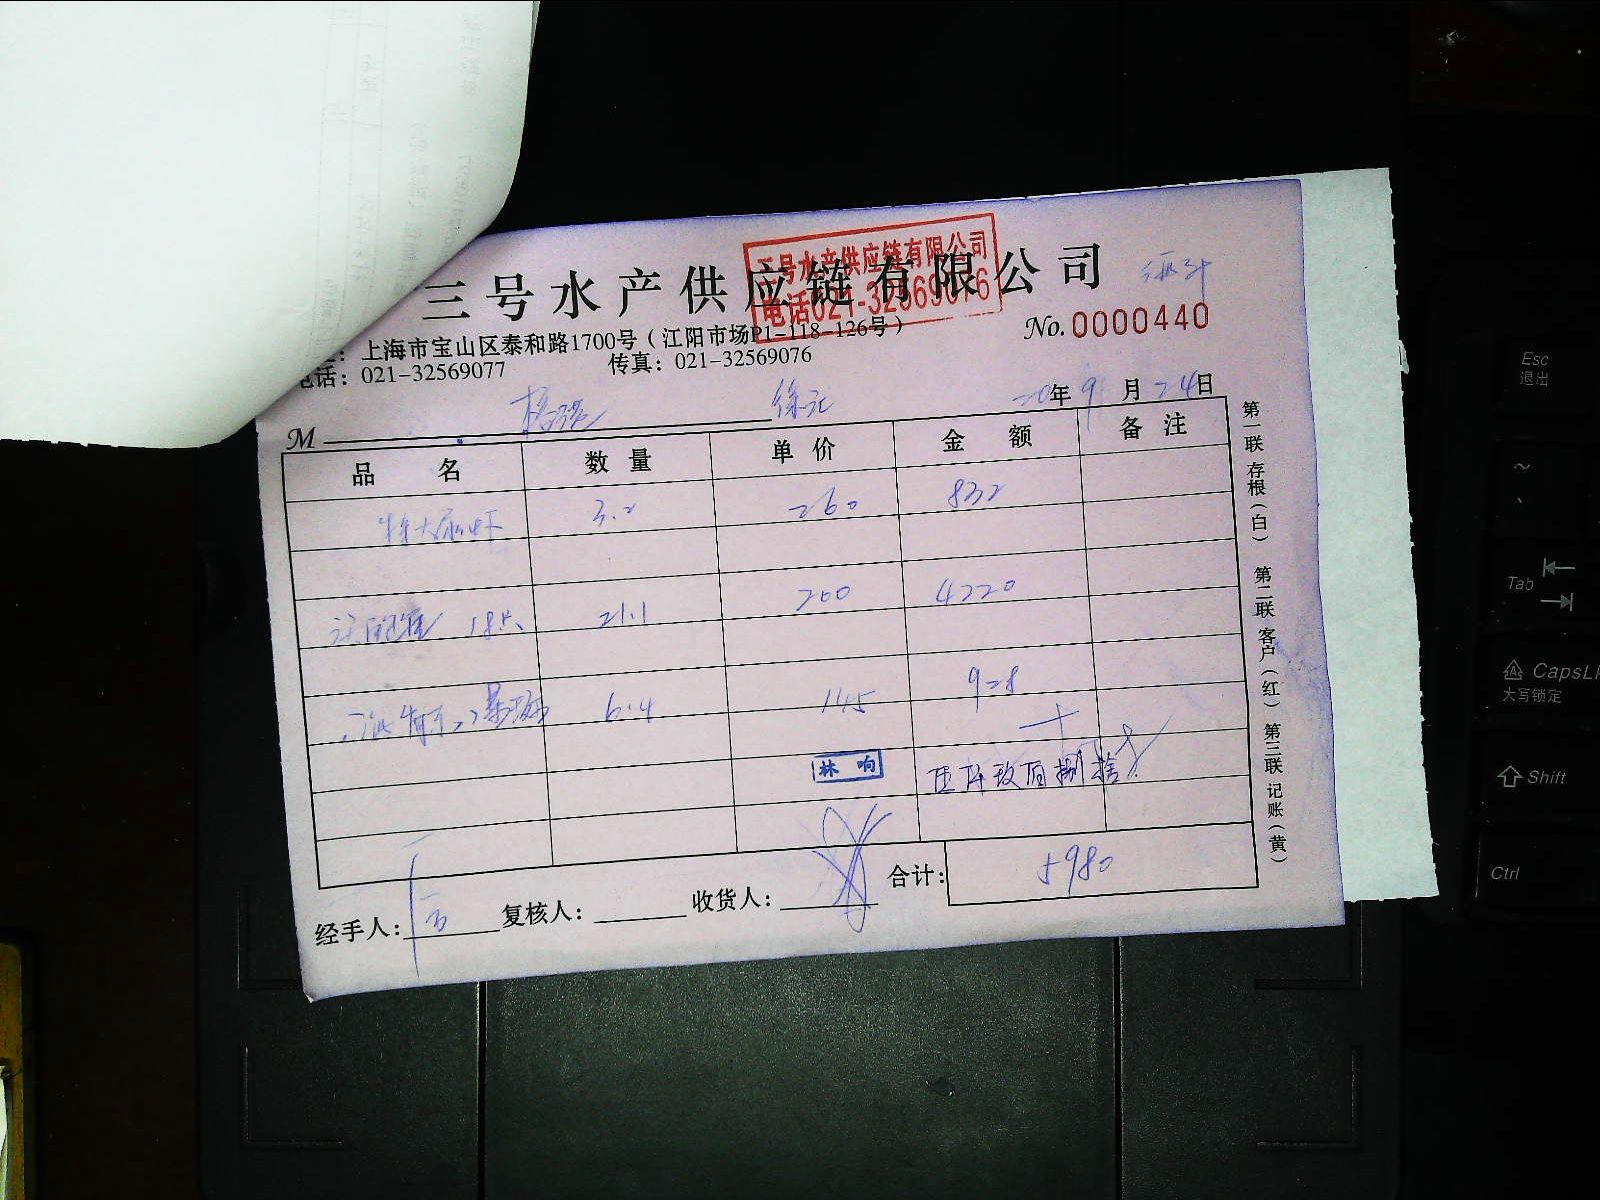 三号水产供应链有限公司
三号水产供应链有限公司
电话021-32569076
No. 0000440
上海市宝山区泰和路1700号（江阳市场P1-118-126号）
电话：021-32569077 传真：021-32569076
M 20年9月24日
品名 数量 单价 金额 备注
特大 虾 3.2 260 832
18只 21.1 200 4220
6.4 145 928
林响
伍仟玖佰捌拾
合计： 5980
经手人： 复核人： 收货人：
第一联存根（白） 第二联客户（红） 第三联记账（黄）
Esc
退出
~
、
Tab
CapsL
大写锁定
Shift
Ctrl